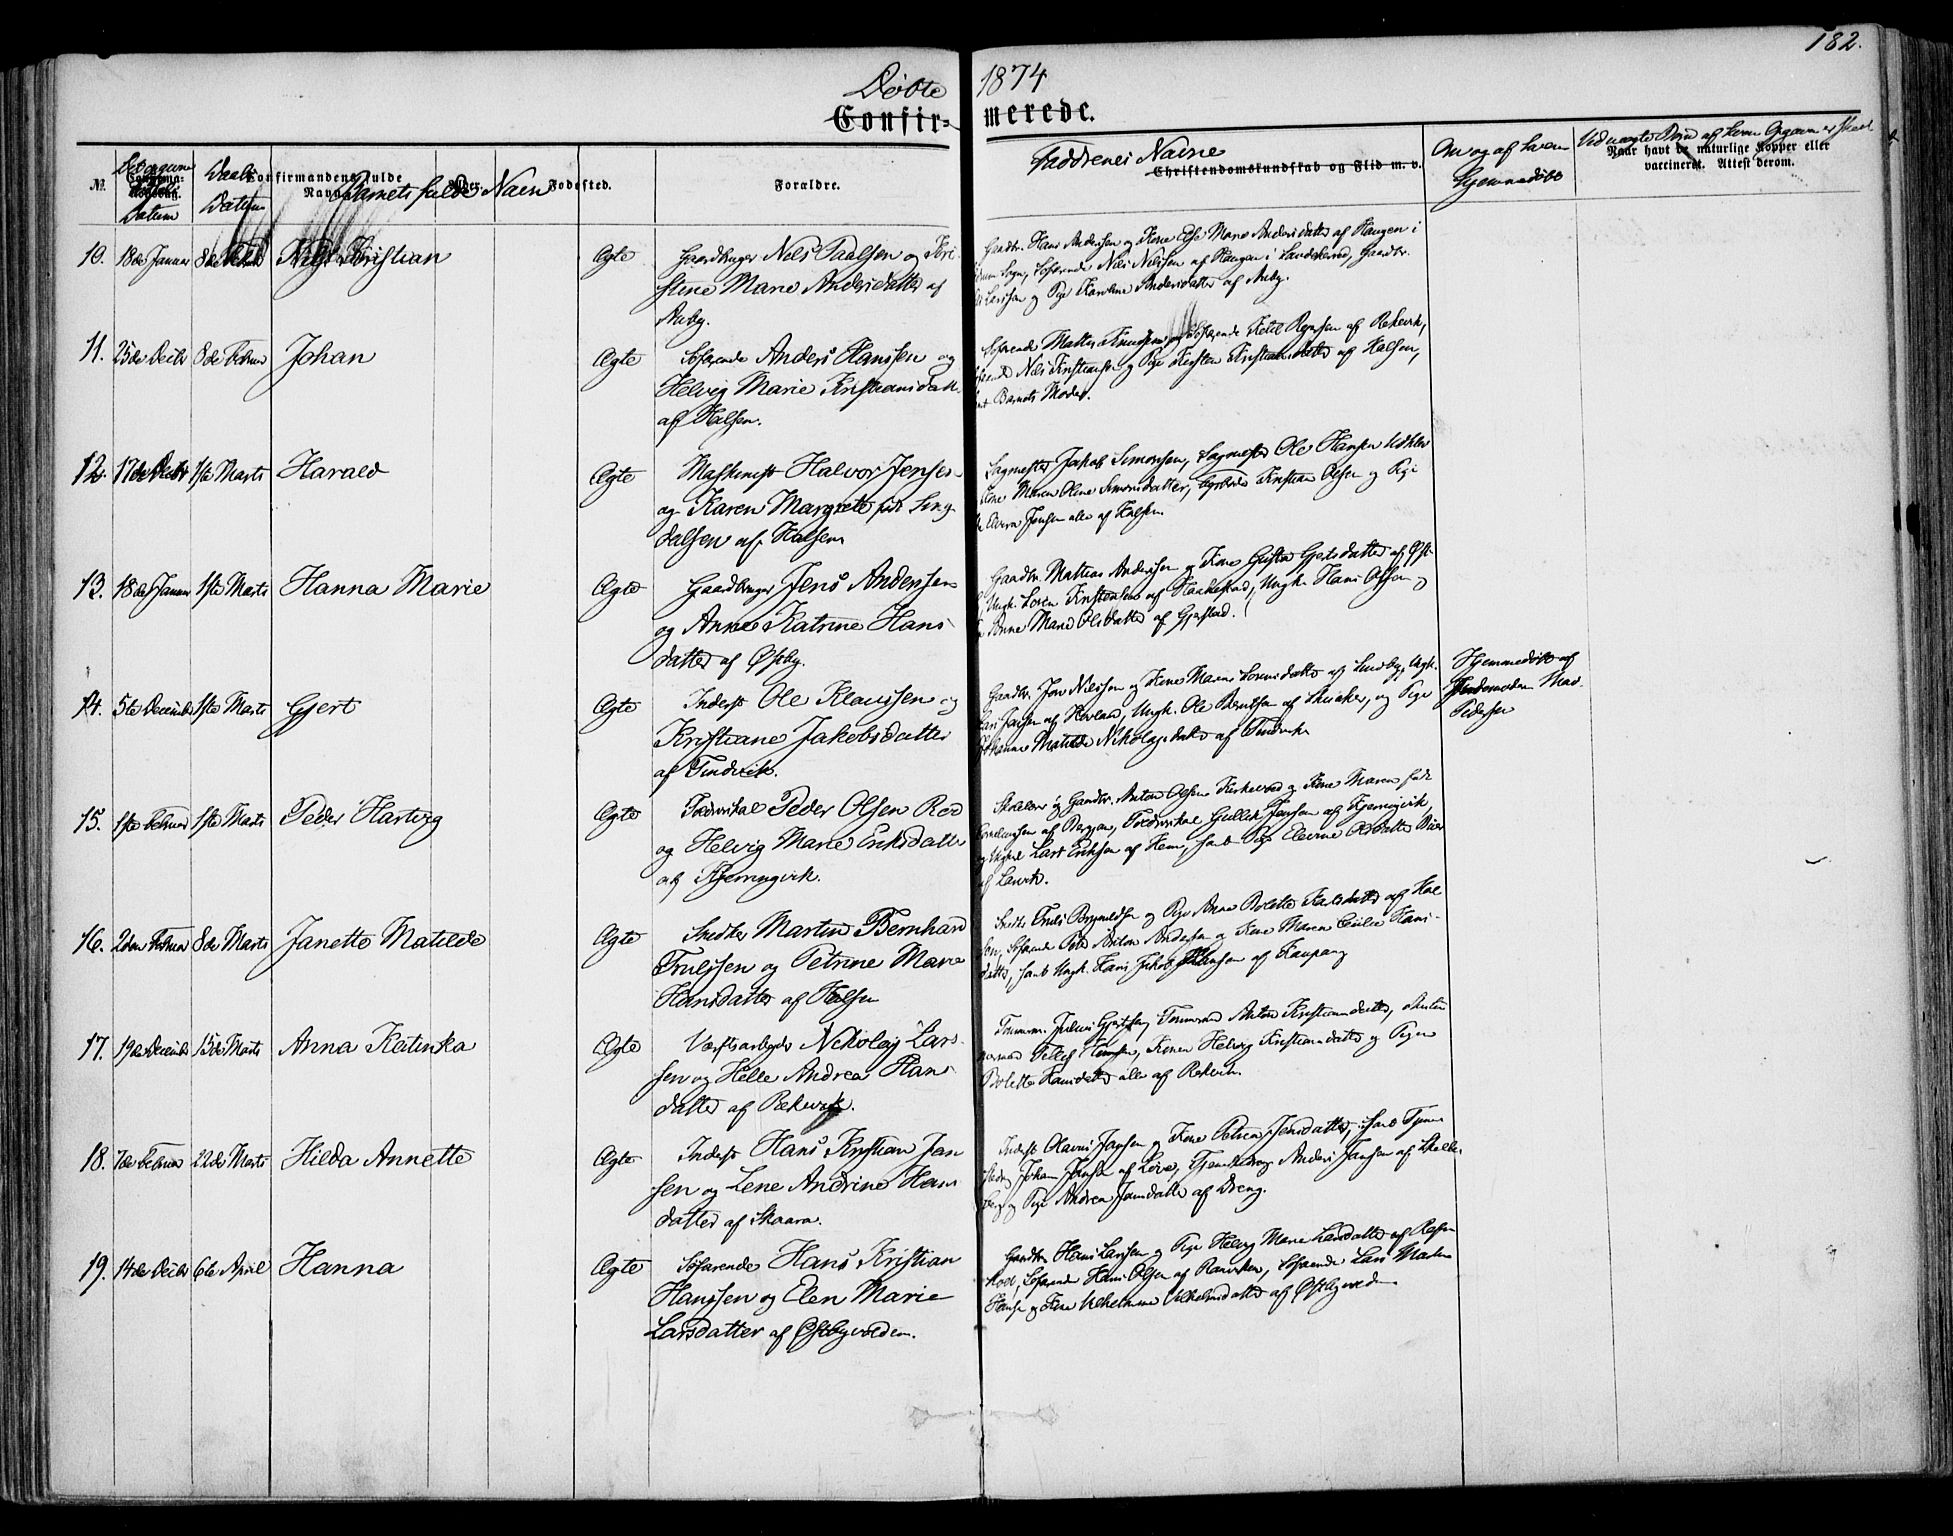 182.
Døbte 1874
Confir- merede.
No.
Datum
Daabs
Datum
Confirmandens fulde
Barnets fulde Navn
Fødested.
Forældre.
Faddrenes Navne
Christendomskundskab og Flid m. v.
Om og af hvem
hjemmedøbt
Naar havt de naturlige Kopper eller
vaccineret. Attest derom.
10. 18de Januar 8de Kristian Ægte Gaardbruger Nils Paalsen og Kri-
stine Marie Andersdatter af
Auby.
Gaardbr. Hans Andersen og Kone Else Marie Andersdatter af Haugen i
Sogn, Søfarende Nils Nilsen af Haugen i Gaardbr.
Larsen og Pige Karoline Andersdatter af Auby.
11. 25de Decbr 8de Februar Johan Ægte Søfarende Anders Hanssen og
Helvig Marie Kristiansdatt.
af Halsen.
Søfarende Mathis Knudsen Søfarende Ketil af Rekevik,
Nils Kristiansen og Pige Kirsten Kristiansdatter af Halsen,
Barnets Moder.
12. 17de Decbr 1ste Marts Harald Ægte Maskinist Halvor Jensen
og Karen Margrete født Sing-
dalsen af Halsen
Sagmester Jakob Simonsen, Sagmester Ole Hansen
Kone Maren Oline Simonsdatter, Kristian Olsen og Pige
Jensen alle af Halsen.
13. 18de Januar 1ste Marts Hanna Marie Ægte Gaardbruger Jens Anderssen
og Anne Katrine Hans
datter af Østby.
Gaardbr. Mathias Anderssen og Kone Gjertsdatter af Øst-
Ungk. Søren Kristensen af Haakestad, Ungk. Hans Olsen og
Anne Marie Olsdatter af Gjerstad.
14. 5te Decembr 1ste Marts Gjert Ægte Inderst Ole Klaussen og
Kristiane Jakobsdatter
af Tindvik.
Gaardbr. Jon Nilssen og Kone Maren Sørensdatter af Lundby, Ungk.
Lars Jansen af Hovland, Ungk. Ole Berntsen af og Pige
Johanne Matilde Nikolajsdatter af Tindvik
Hjemmedøbt af
Jordemoder Mad.
Pedersen
15. 1ste Februar 1ste Marts Peder Hartvig Ægte Peder Olsen Rød
og Helvig Marie Eriksdatter
af Kjerringvik.
Skolelærer og Gaardbr. Anton Olsen Kirkevold og Kone Maren født
af Bergan, Gullik Jansen af Kjerringvik,
og Ungkarl Lars Eriksen af Hem, samt Pige Elevine Olsdatter
af Larvik.
16. 2den Februar 8de Marts Janette Matilde Ægte Snedker Martin Bernhard
Trulssen og Petrine Marie
Hansdatter af Halsen
Snedker Truls Brynildsen og Pige Anne Bolette Karlsdatter af Hal
sen, Søfarende Peter Anton Andersen og Kone Maren Cecilie Hans-
datter, samt Ungk. Hans Jakob Hansen af Kaupang
17. 19de Decembr 15de Marts Anna Katinka Ægte Værftsarbeider Nikolaj Lars-
sen og Helle Andrea Hans
datter af Rekevik.
Tømmerm. Julius Gjertsen, Tømmermand Anton Kristiansdatter,
Tellef Hansen, Konen Helvig Kristiansdatter og Pigen
Bolette Hansdatter alle af Rekevik.
18. 7de Februar 22de Marts Hilda Annette Ægte Inderst Hans Kristian Jan
sen og Lene Andrine Hans
datter af Skaara.
Inderst Olavus Jansen og Kone Petrea Jensdatter, samt
Johan Jensen af Løve, Tjenestedreng Anders Jansen af Skalle-
berg og Pige Andrea Jansdatter af Dreng.
19. 14de Decbr 6te April Hanna Ægte Søfarende Hans Kristian
Hanssen og Elen Marie
Larsdatter af Østbyveden.
Gaardbr. Hans Larssen og Pige Helvig Marie Larsdatter af
Søfarende Hans Olsen af Søfarende Lars Martin
Hanse og Kone Vilhelmine Vilhelmsdatter af Østbyveden